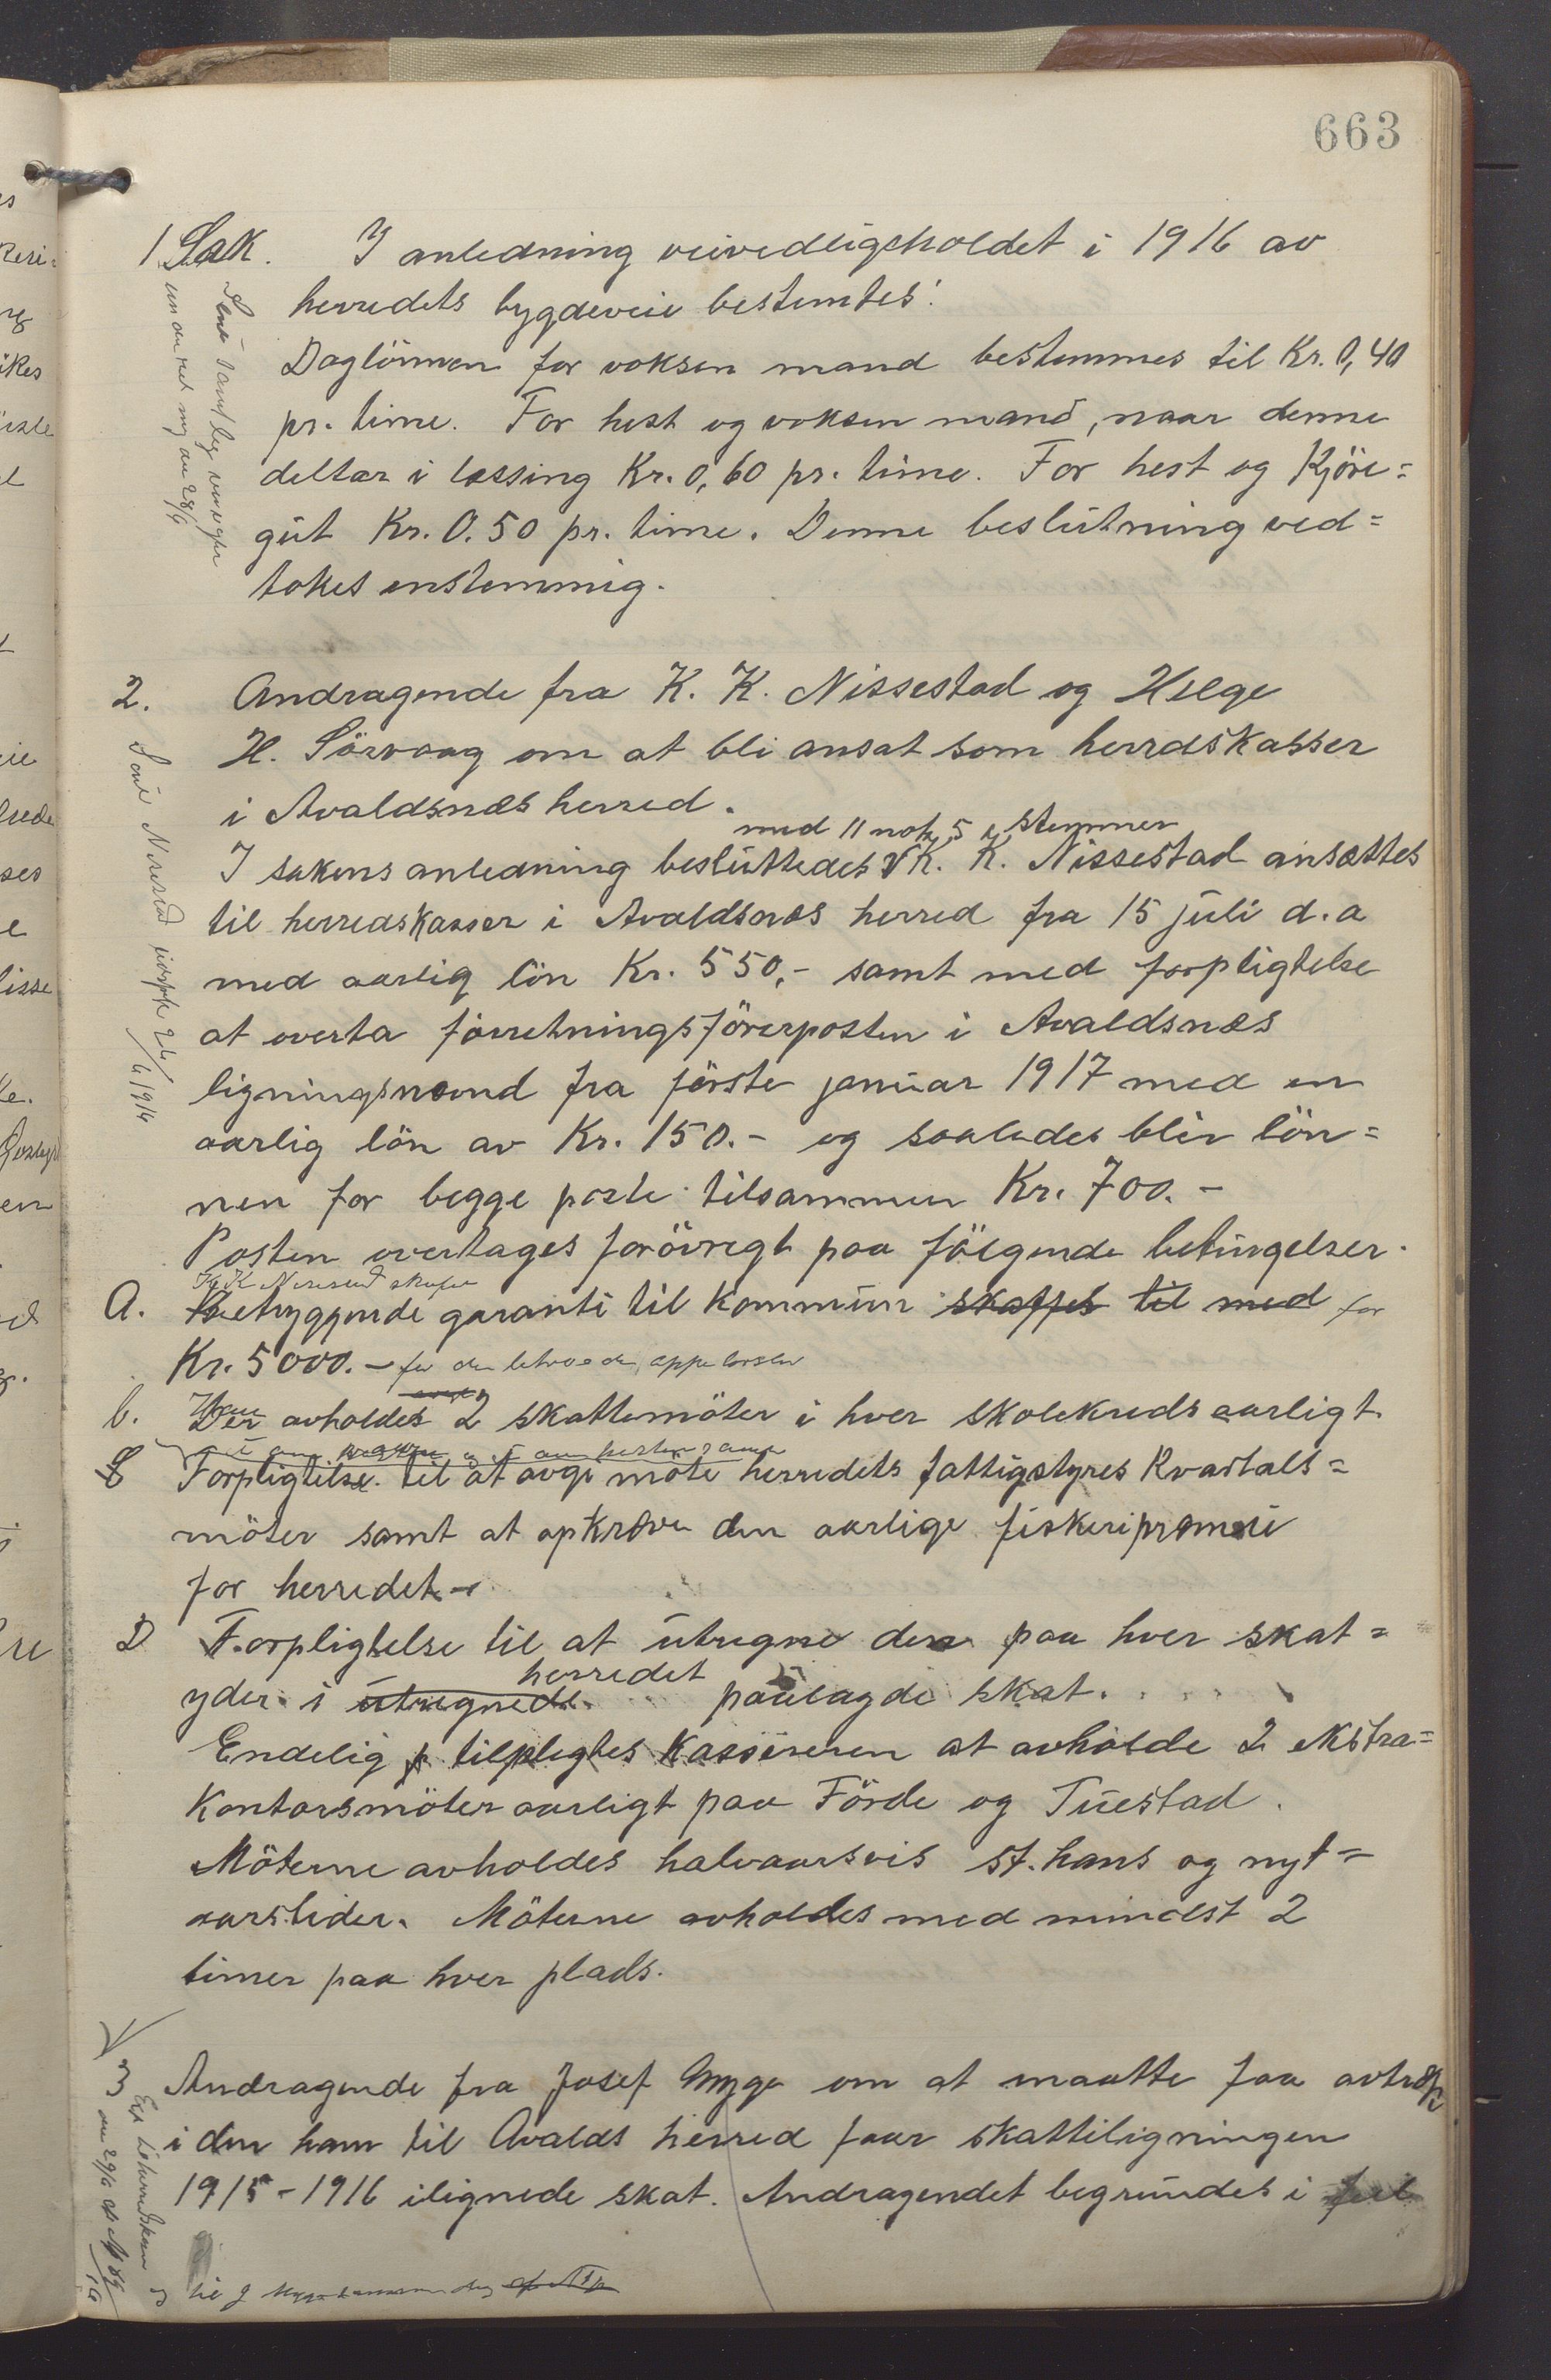 663
1 Sak. I anledning veivedligeholdet i 1916 av
herredets bygdeveie bestemtes:
Daglönnen for voksen mand bestemmes til Kr. 0,40
pr. time. For hest og voksen mand, naar denne
deltar i læssing Kr. 0,60 pr. time. For hest og Kjöre=
gut Kr. 0.50 pr. time. Denne beslutning ved=
tokes enstemmig.
2. Andragende fra K. K. Nissestad og Helge
H. Sörvaag om at bli ansat som herredskasser
i Avaldsnæs herred.
med 11 mot 5 stemmer
I sakens anledning besluttedes K. K. Nissestad ansættes
til herredskasser i Avaldsnæs herred fra 15 juli d.a
med aarlig lön Kr. 550,- samt med forpligtelse
at overta forretningsförerposten i Avaldsnæs
ligningsnævnd fra förste januar 1917 med en
aarlig lön av Kr. 150.- og saaledes blir lön=
nen for begge poste tilsammen Kr. 700.-
Posten overtages forövregt paa fölgende betingelser.
A. Betryggende garanti til Kommunen skaffes til med for
Kr. 5000.-
b. Der avholdes 2 skattemöter i hver skolekreds aarligt.
Forpligtelse til at möte herredets fattigstyres Kvartals=
möter samt at opkræve den aarlige fiskeripræmie
for herredet.-
D Forpligtelse til at utregne den paa hver skat=
herredet
yder i utregnede paalagde skat.
Endelig tilpligtes Kassereren at avholde 2 ekstra=
Kontorsmöter aarligt paa Förde og Tuestad.
Möterne avholdes halvaarsvis st. hans og nyt=
aarstider. Möterne avholdes med mindst 2
timer paa hver plads.
3 Andragende fra Josef Mygo om at maatte faa avtræk
i den ham til Avalds herred faar skatteligningen
1915-1916 ilignede skat. Andragendet begrundes i feil